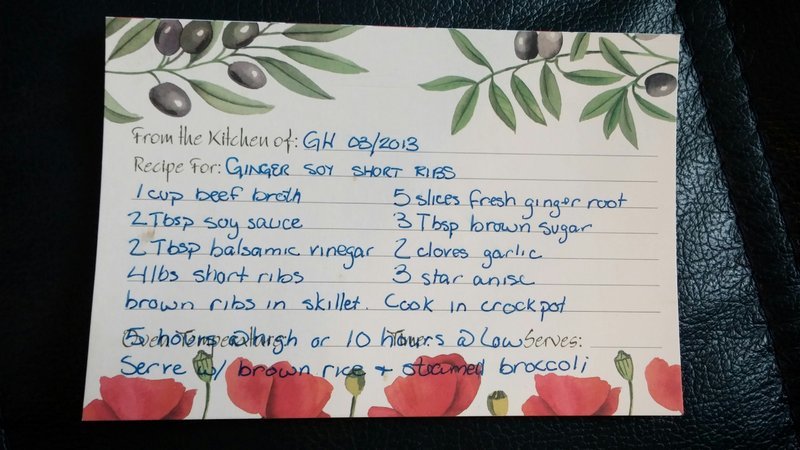 From the Kitchen of: GH 03/2013
Recipe For: GINGER SOY SHORT RIBS
1 cup beef broth 5 slices fresh ginger root
2 Tbsp soy sauce 3 Tbsp brown sugar
2 Tbsp balsamic vinegar 2 cloves garlic
4 lbs short ribs 3 star anise
brown ribs in skillet. Cook in crockpot
5 hours @ high or 10 hours @ Low Serves:
Serve w/ brown rice + steamed broccoli